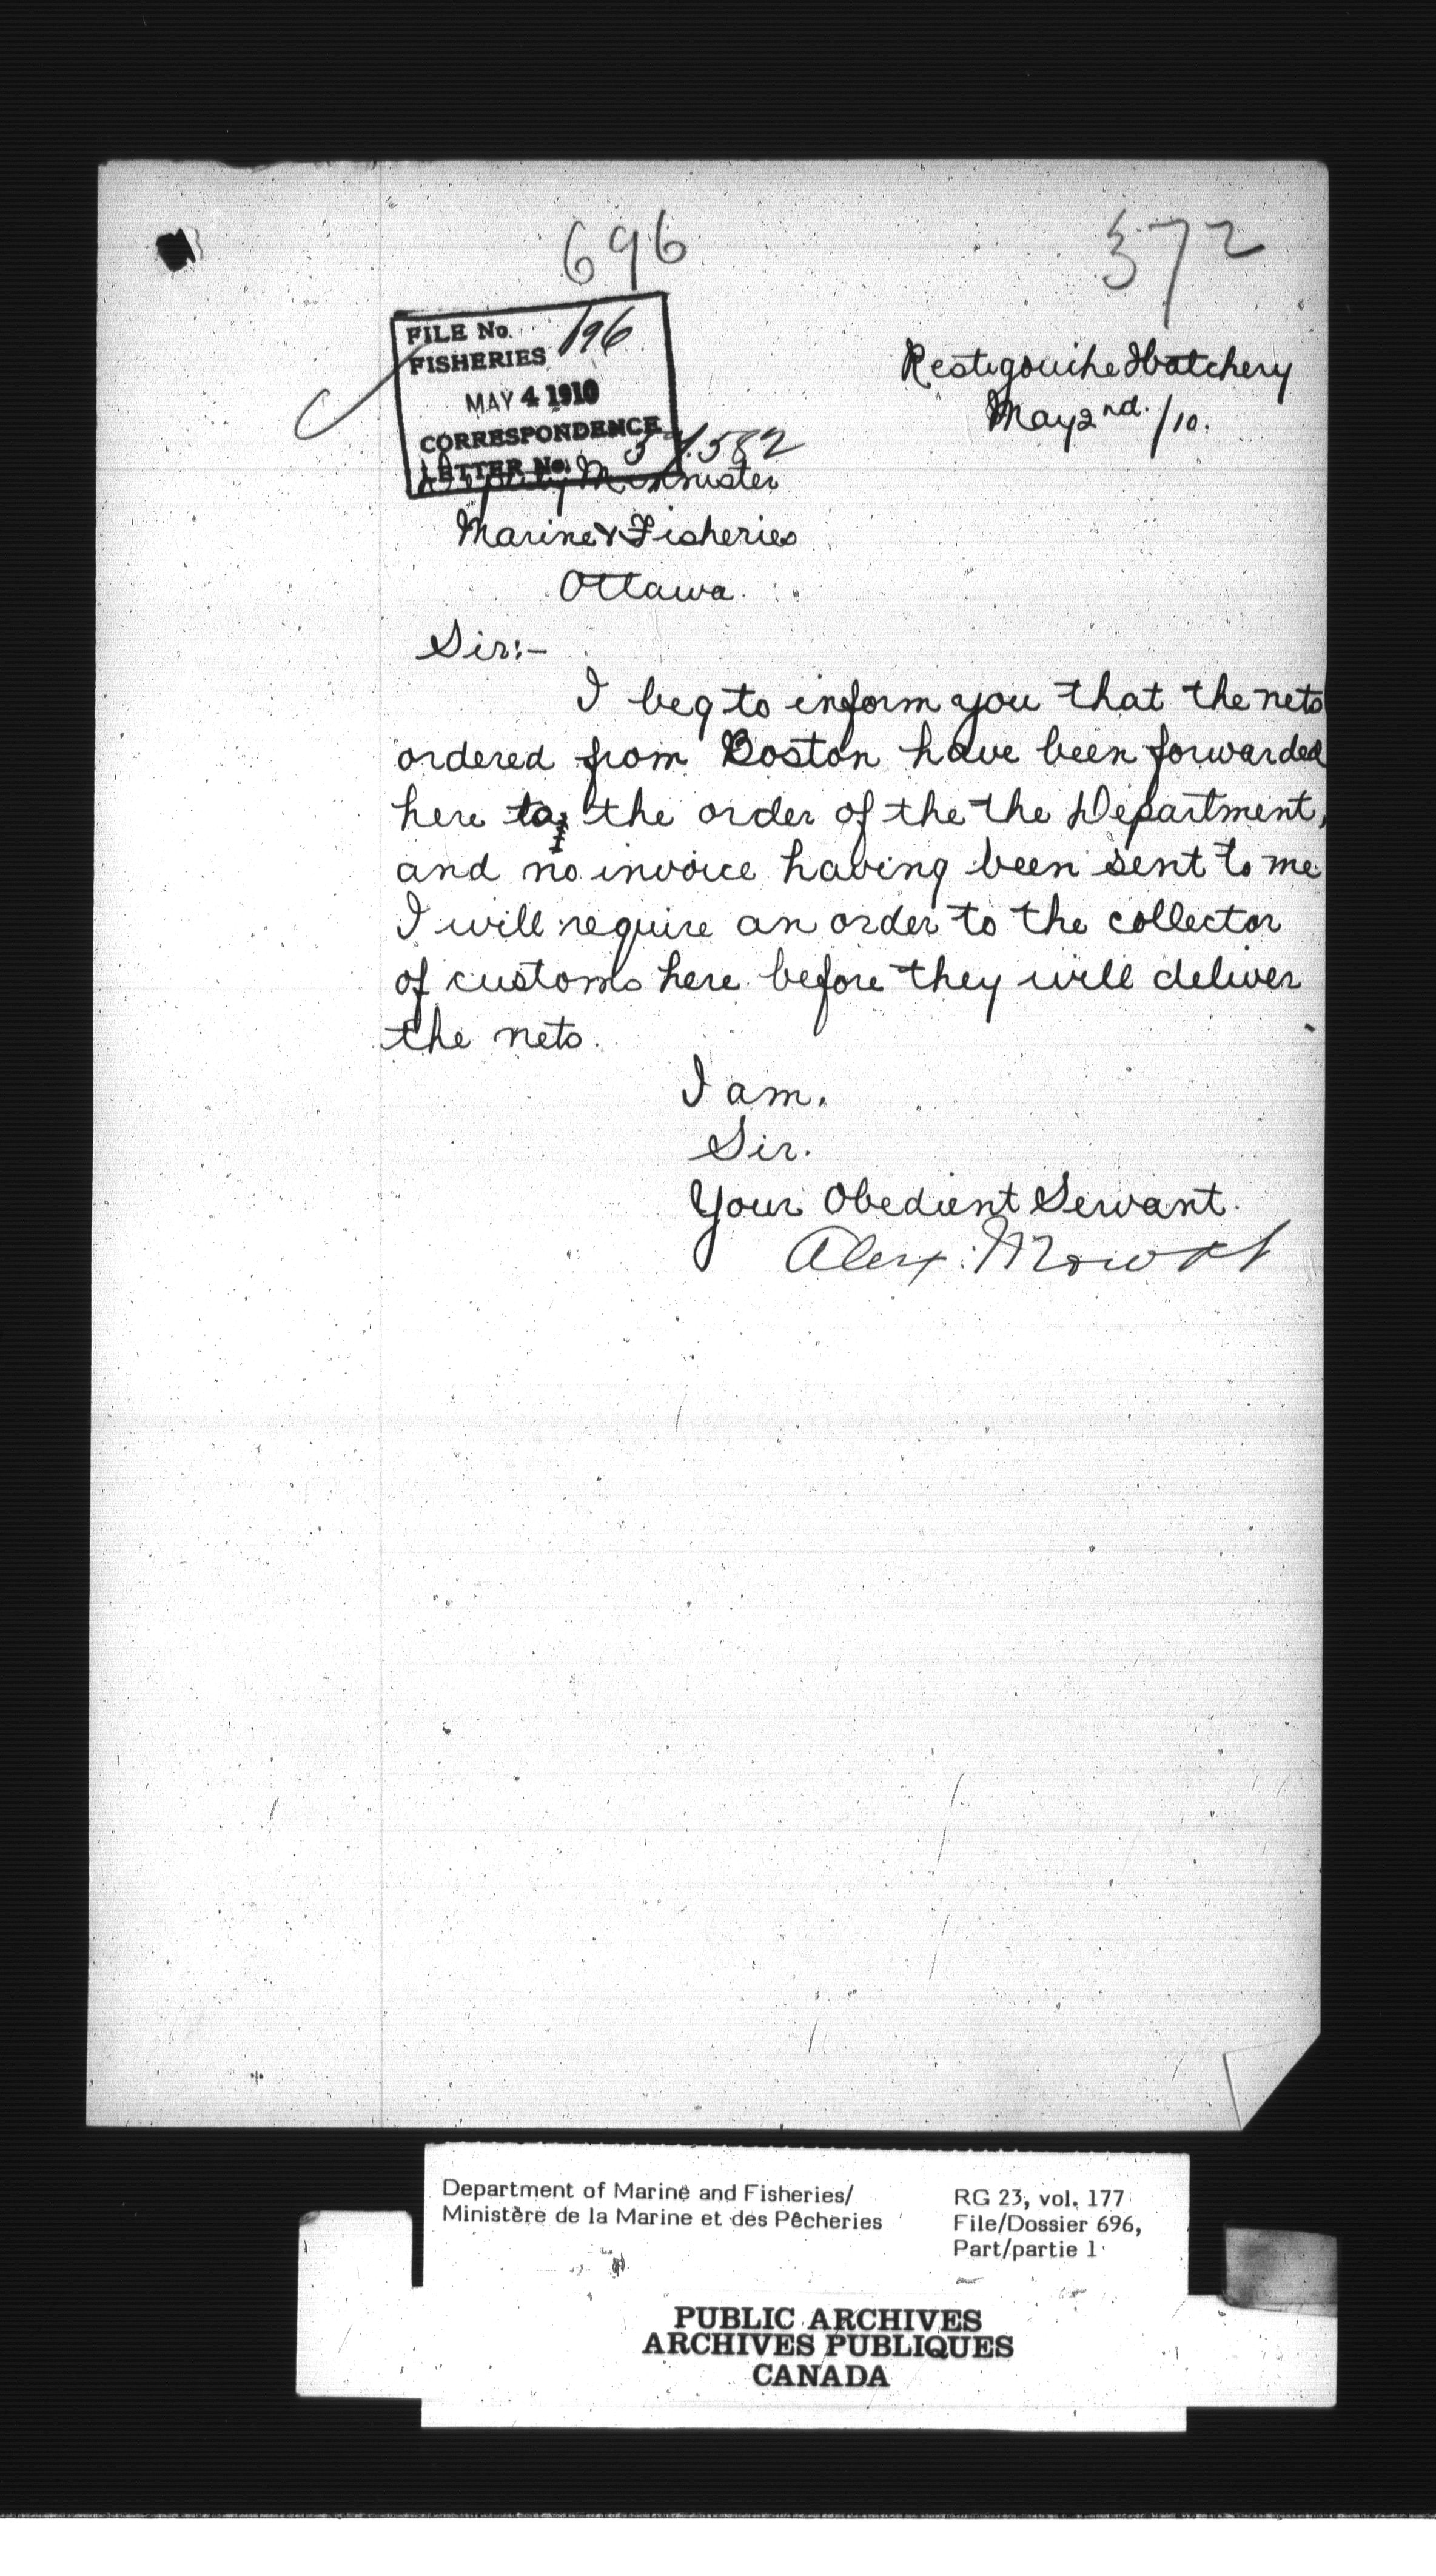 696
372
FILE No. 696
FISHERIES
MAY 4 1910
CORRESPONDENCE
LETTER No.
Restigouche Hatchery
May 2nd. /10.
Deputy Minister
Marine & Fisheries
Ottawa.
Sir:-
I beg to inform you that the nets
ordered from Boston have been forwarded
here to the order of the the Department,
and no invoice having been sent to me
I will require an order to the collector
of customs here before they will deliver
the nets.
I am.
Sir.
Your Obedient Servant.
Alex. Mowat
Department of Marine and Fisheries/
Ministère de la Marine et des Pêcheries
RG 23, vol. 177
File/Dossier 696,
Part/partie 1
PUBLIC ARCHIVES
ARCHIVES PUBLIQUES
CANADA